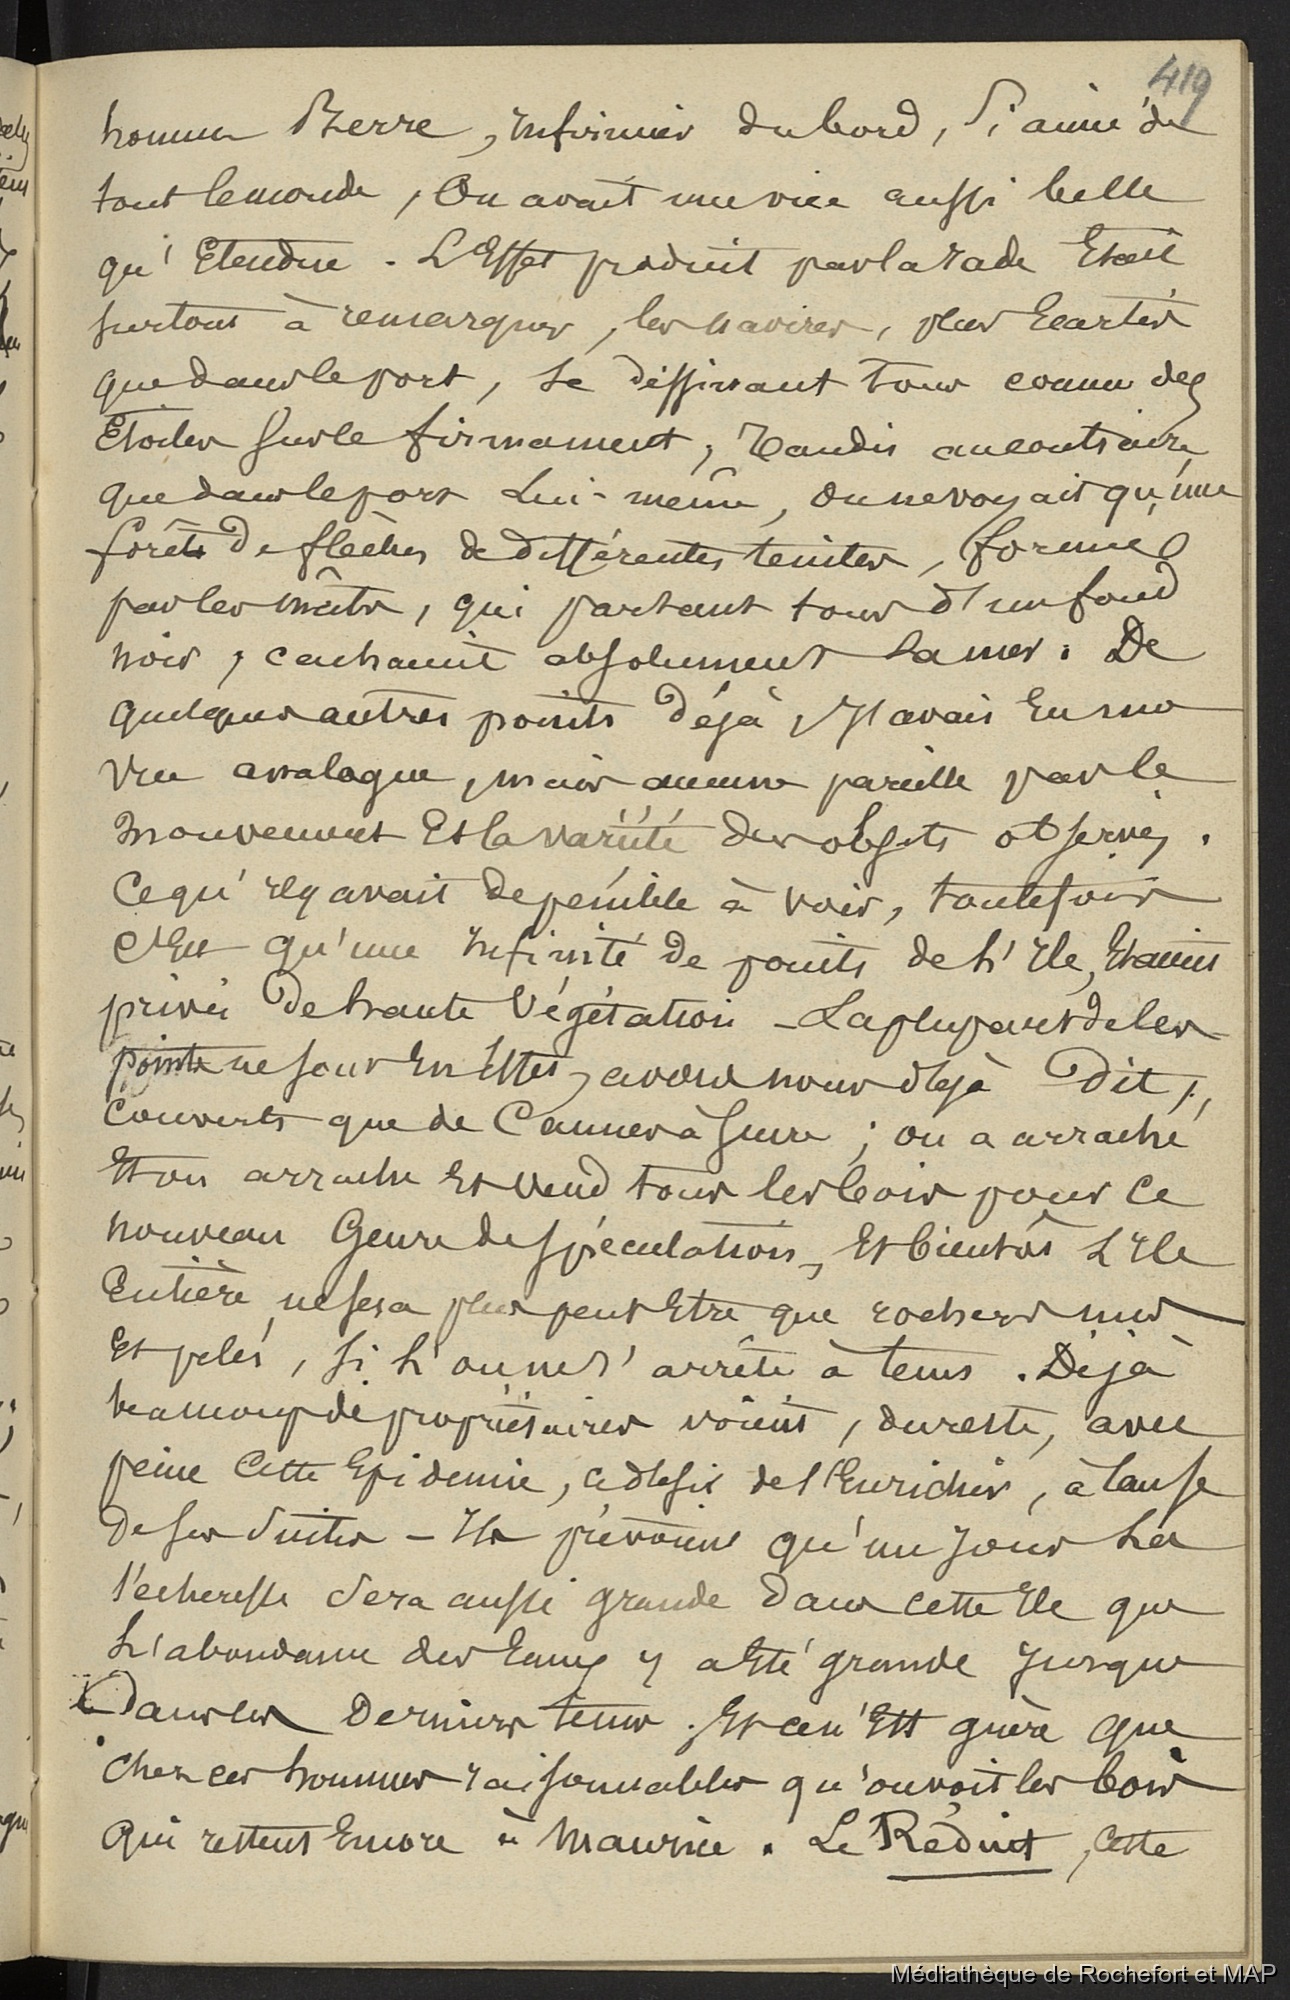 419
homme Pierre, Infirmier du bord, si aimé de
tout le monde, On avait une vue aussi belle
qu'Etendue. L'Effet produit par la rade Etait
surtout à remarquer, les navires, plus Ecartés
que dans le port, se dessinant tous comme des
Etoiles sur le firmament, Tandis au contraire
que dans le port Lui-même, on ne voyait qu'une
forêt De flèches de différentes teintes, formée
par les mâts, qui partant tous d'un fond
noir, cachaient absolument La mer. De
quelques autres points Déjà, J'avais Eu une
Vue analogue, mais aucune pareille par le
mouvement Et la variété des objets observés.
Ce qu'il y avait de pénible à voir, toutefois
c'Est qu'une Infinité de points de L'Ile, Etaient
privés De haute Végétation - La plupart de ces
points ne sont En Effet, avons nous déjà Dit,
couverts que de Cannes à sucre ; on a arraché
Et on arrache Et vend tous les bois pour ce
nouveau Genre de spéculation, Et bientôt L'Ile
Entière ne sera plus peut Etre que rochers nus
Et pelés, si L'on ne s'arrête à tems. Déjà
beaucoup de propriétaires voient, du reste, avec
peine Cette Epidemie, ce désir de s'Enrichir, à Cause
De ses Suites - Ils prévoient qu'un jour La
sécheresse Sera aussi grande Dans cette Ile que
L'abondance des Eaux y a Eté grande Jusque
Dans ces Derniers tems. Et ce n'Est guère que
chez ces hommes raisonnables qu'on voit les bois
qui restent Encore à Maurice. Le Réduit, cette
Médiathèque de Rochefort et MAP